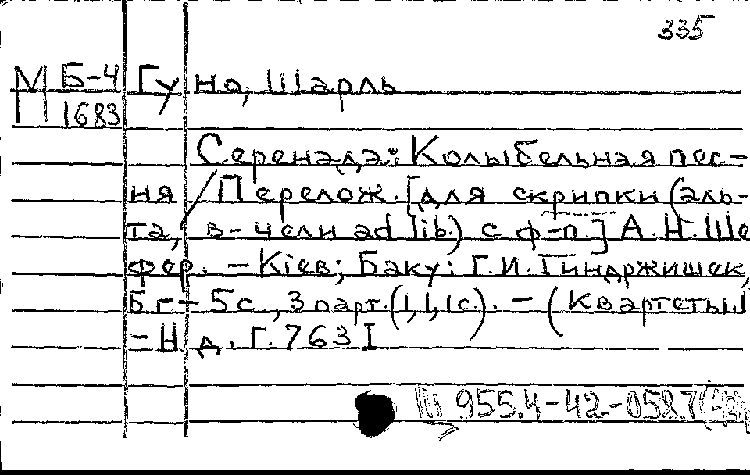 335
М Б-4 Гуно, Шарль
1683
Серенада: Колыбельная пес-
ня / Перелож. [для скрипки (аль-
та, в-чели ad lib.) с ф-п.] А.Н.Ше
фер. - Кiев; Баку: Г.И.Тиндржишек,
Б.г. - 5с., 3 парт. (1,1,1с.). - (Квартеты
- Н.д. Г.763 I
955.4-42-0587